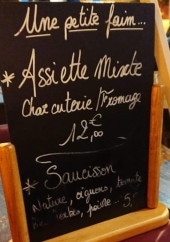 Une petite faim...
* Assiette Mixte
Charcuterie/Fromage
12,00
* Saucisson
Nature, oignons, tomate
5